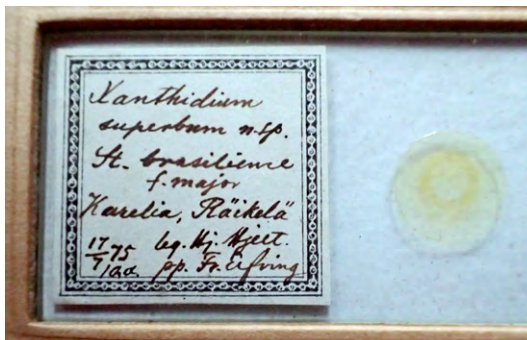 Xanthidium
superbum n.sp.
St. brasiliense
f. major
Karelia, Räikelä
17 75 leg. Hj. Hjelt.
pp. Fr. Elfving